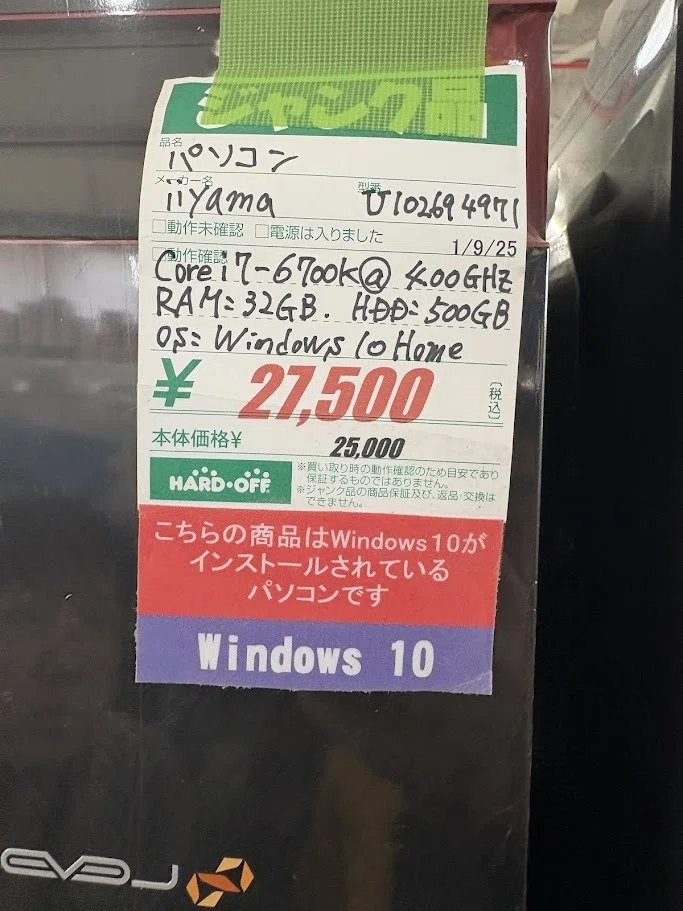 ジャンク品
品名
パソコン
メーカー名
iiyama
型番
U102694971
□動作未確認 □電源は入りました
1/9/25
□動作確認
Core i7-6700K@ 400GHz
RAM: 32GB. HDD: 500GB
OS: Windows 10 Home
¥ 27,500 〔税込〕
本体価格¥ 25,000
HARD・OFF
※買い取り時の動作確認のため目安であり
保証するものではありません。
※ジャンク品の商品保証及び、返品・交換は
できません。
こちらの商品はWindows10が
インストールされている
パソコンです
Windows 10